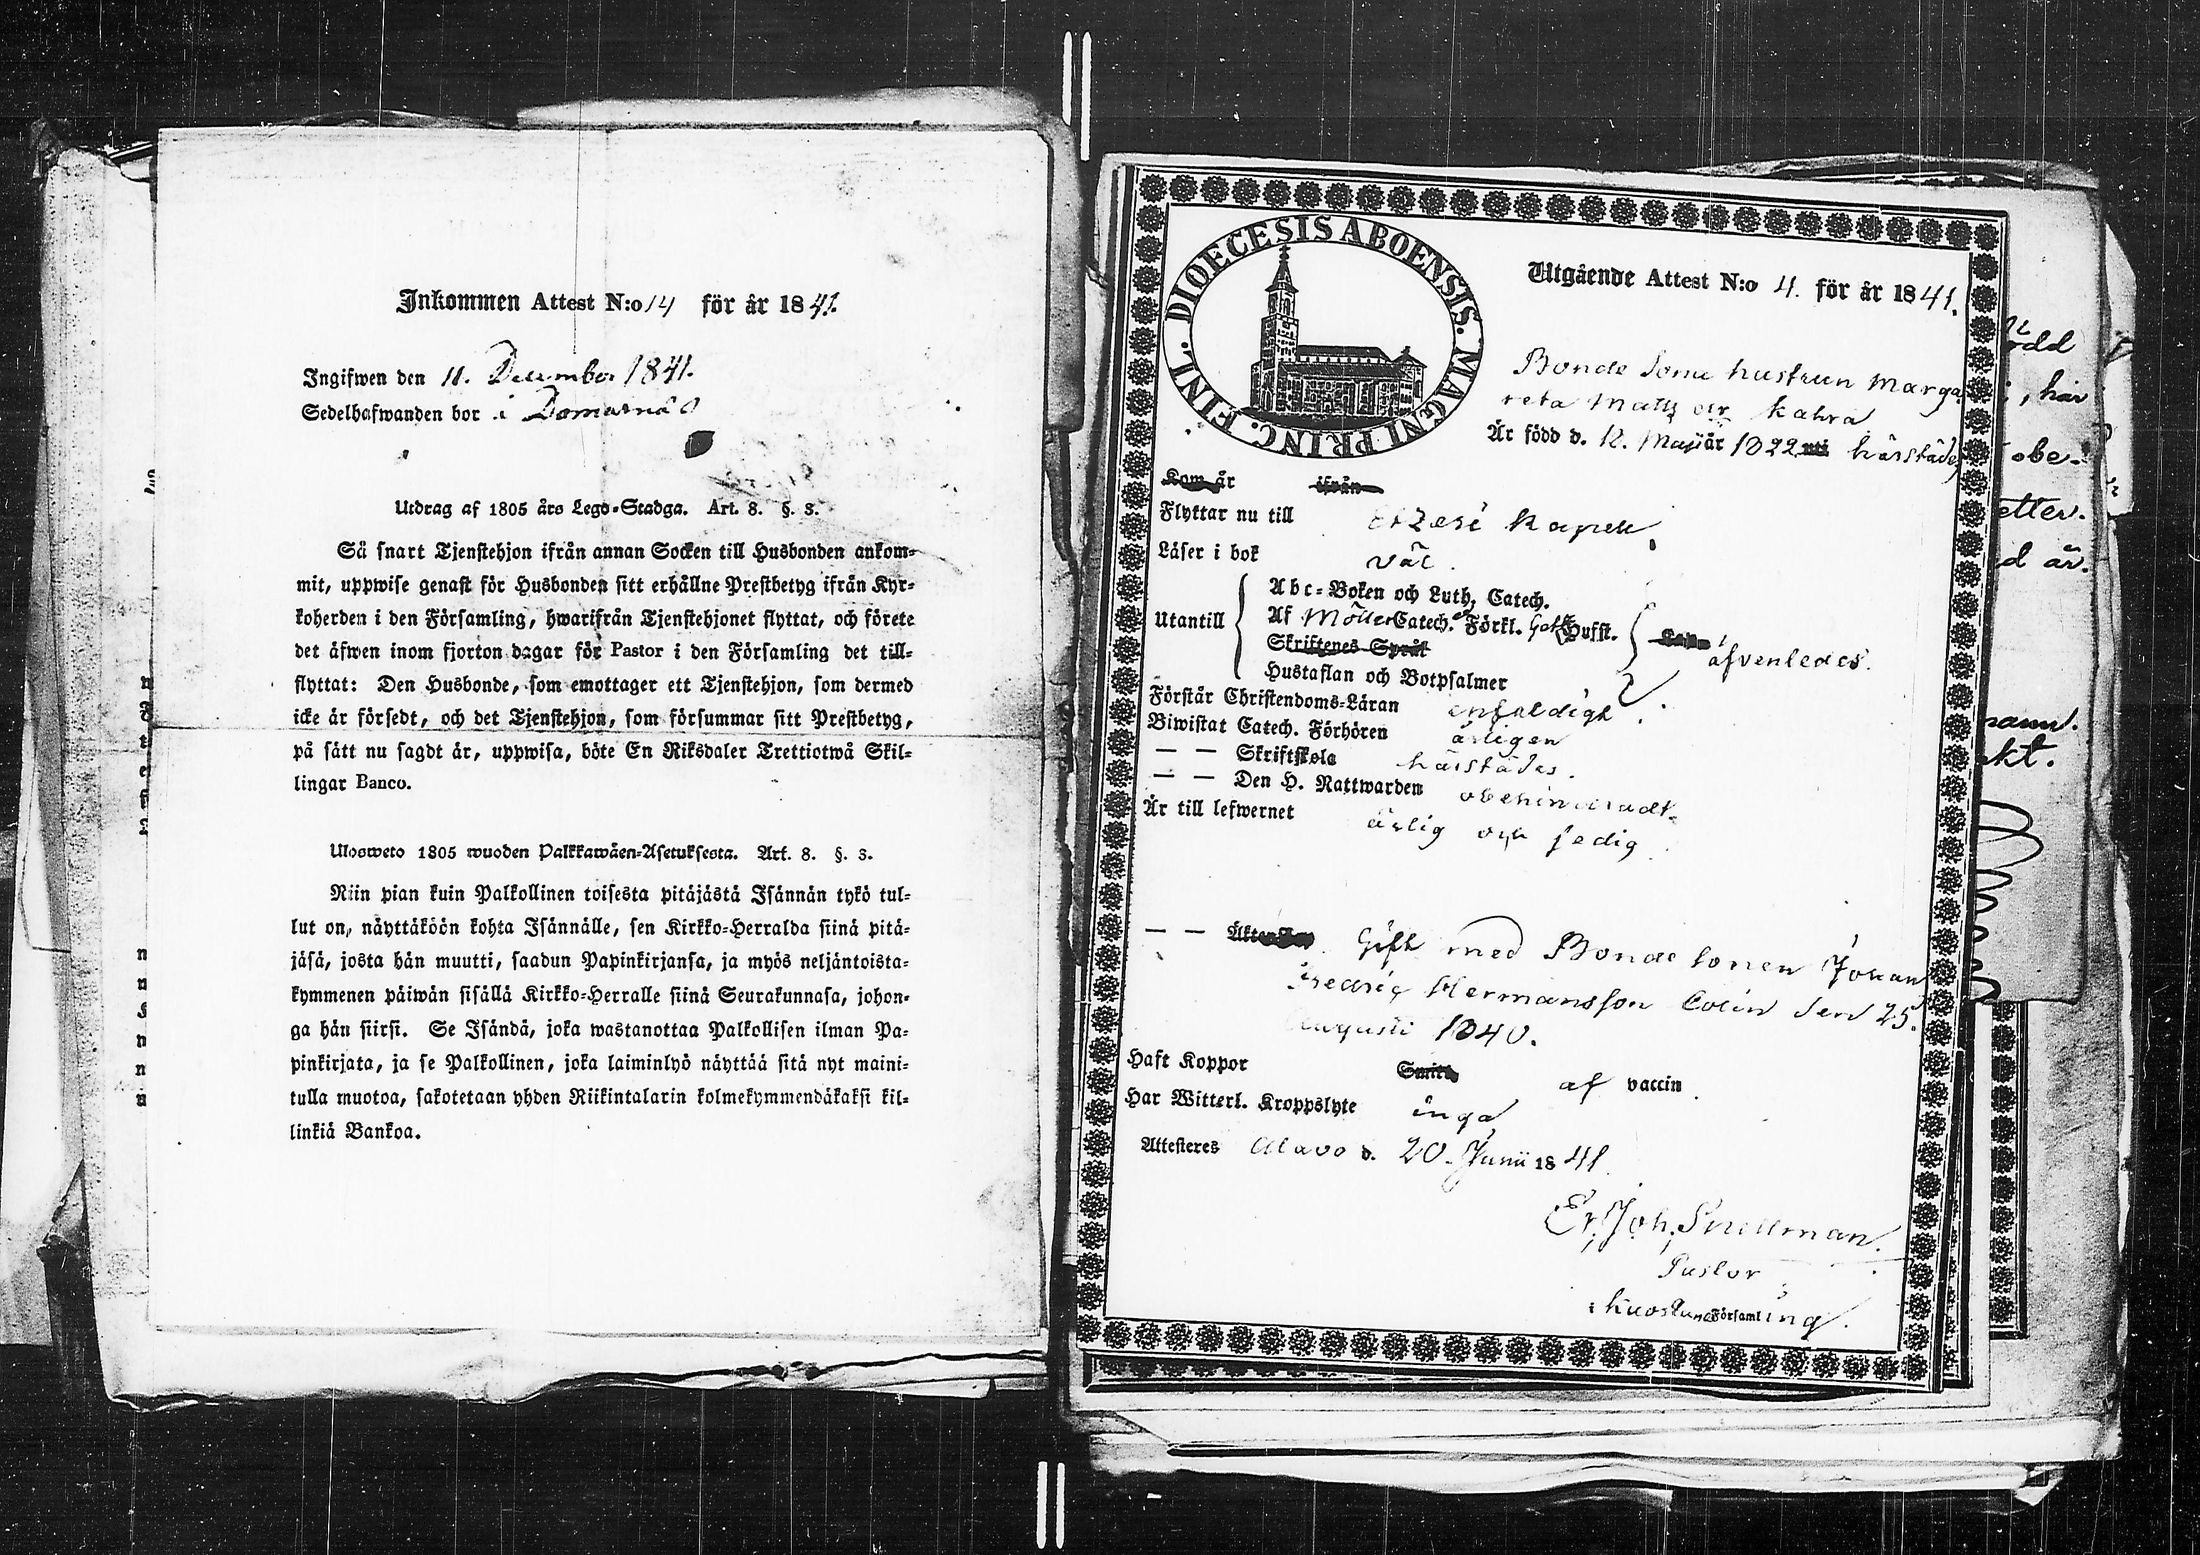 Inkommen Attest N:o 14 för år 1841.
Ingifwen den 11. December 1841.
Sedelhafwanden bor i Domarnäs
Utdrag af 1805 års Lego-Stadga. Art. 8. §. 3.
Så snart Tjenstehjon ifrån annan Socken till Husbonden ankom-
mit, uppwise genast för Husbonden sitt erhållne Prestbetyg ifrån Kyr-
koherden i den Församling, hwarifrån Tjenstehjonet flyttat, och förete
det äfwen inom fjorton dagar för Pastor i den Församling det till-
flyttat: Den Husbonde, som emottager ett Tjenstehjon, som dermed
icke är försedt, och det Tjenstehjon, som försummar sitt Prestbetyg,
på sätt nu sagdt är, uppwisa, böte En Riksdaler Trettiotwå Skil-
lingar Banco.
Ulosweto 1805 wuoden Palkkawäen-Asetuksesta. Art. 8. §. 3.
Niin pian kuin Palkollinen toisesta pitäjästä Isännän tykö tul-
lut on, näyttäköön kohta Isännälle, sen Kirkko-Herralda siinä pitä-
jäsä, josta hän muutti, saadun Papinkirjansa, ja myös neljäntoista-
kymmenen päiwän sisällä Kirkko-Herralle siinä Seurakunnasa, johon-
ga hän siirsi. Se Isändä, joka wastanottaa Palkollisen ilman Pa-
pinkirjata, ja se Palkollinen, joka laiminlyö näyttää sitä nyt maini-
tulla muotoa, sakotetaan yhden Riikintalarin kolmekymmendäkaksi kil-
linkiä Bankoa.
DIOECESIS ABOENSIS. MAGNI PRINC. FINL.
Utgående Attest N:o 4. för år 1841.
Bonde Sone hustrun Marga
reta Matts dr Kahra
Är född d. 12. Maji år 1822 uti härstädes
Kom år ifrån
Flyttar nu till Etzeri Kapell.
Läser i bok väl.
Abc-Boken och Luth. Catech.
Utantill Af Möllers Catech. Förkl. Hufst.
Skriftenes Språk
äfvenledes.
Hustaflan och Botpsalmer
Förstår Christendoms-Läran enfaldigt.
Biwistat Catech. Förhören årligen
— — Skriftskola härstädes.
— — Den H. Nattwarden obehindradt.
Är till lefwernet ärlig och sedig
— — Gift med Bonde sonen Johan
Fredric Hermansson Colin den 25.
Augusti 1840.
Haft Koppor af vaccin
Har Witterl. Kroppslyte inga
Attesteres Alavo d. 20. Junii 1841
Er. Joh. Snellman.
Pastor
i Kuortane Församling.
ödd
, har
obe-
etter.
d är.